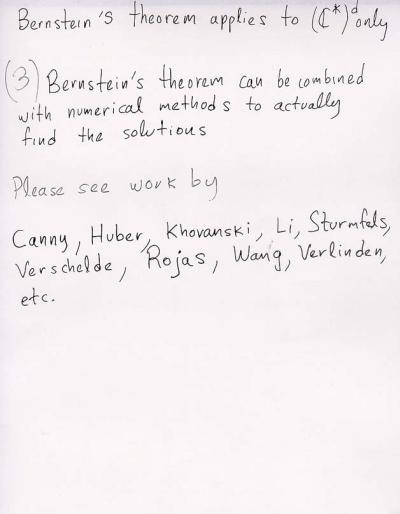 Bernstein's theorem applies to (ℂ*)^d only
(3) Bernstein's theorem can be combined
with numerical methods to actually
find the solutions
Please see work by
Canny, Huber, Khovanski, Li, Sturmfels,
Verschelde, Rojas, Wang, Verlinden,
etc.